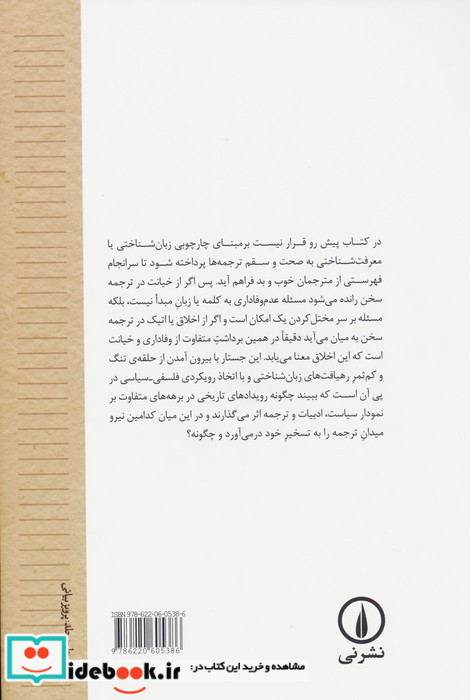 در کتاب پیش رو قرار نیست برمبنای چارچوبی زبان‌شناختی یا
معرفت‌شناختی به صحت و سقم ترجمه‌ها پرداخته شود تا سرانجام
فهرستی از مترجمان خوب و بد فراهم آید. پس اگر از خیانت در ترجمه
سخن رانده می‌شود مسئله عدم‌وفاداری به کلمه یا زبانِ مبدأ نیست، بلکه
مسئله بر سر مختل‌کردن یک امکان است و اگر از اخلاق یا اتیک در ترجمه
سخن به میان می‌آید دقیقاً در همین برداشتِ متفاوت از وفاداری و خیانت
است که این اخلاق معنا می‌یابد. این جستار با بیرون آمدن از حلقه‌ی تنگ
و کم‌ثمرِ رهیافت‌های زبان‌شناختی و با اتخاذ رویکردی فلسفی-سیاسی در
پی آن است که ببیند چگونه رویدادهای تاریخی در برهه‌های متفاوت بر
نمودار سیاست، ادبیات و ترجمه اثر می‌گذارند و در این میان کدامین نیرو
میدانِ ترجمه را به تسخیرِ خود درمی‌آورد و چگونه؟
ISBN 978-622-06-0538-6
9 786220 605386
نشرنی
جلد: پرویز بیانی
مشاهده و خرید این کتاب در:
idebook.ir